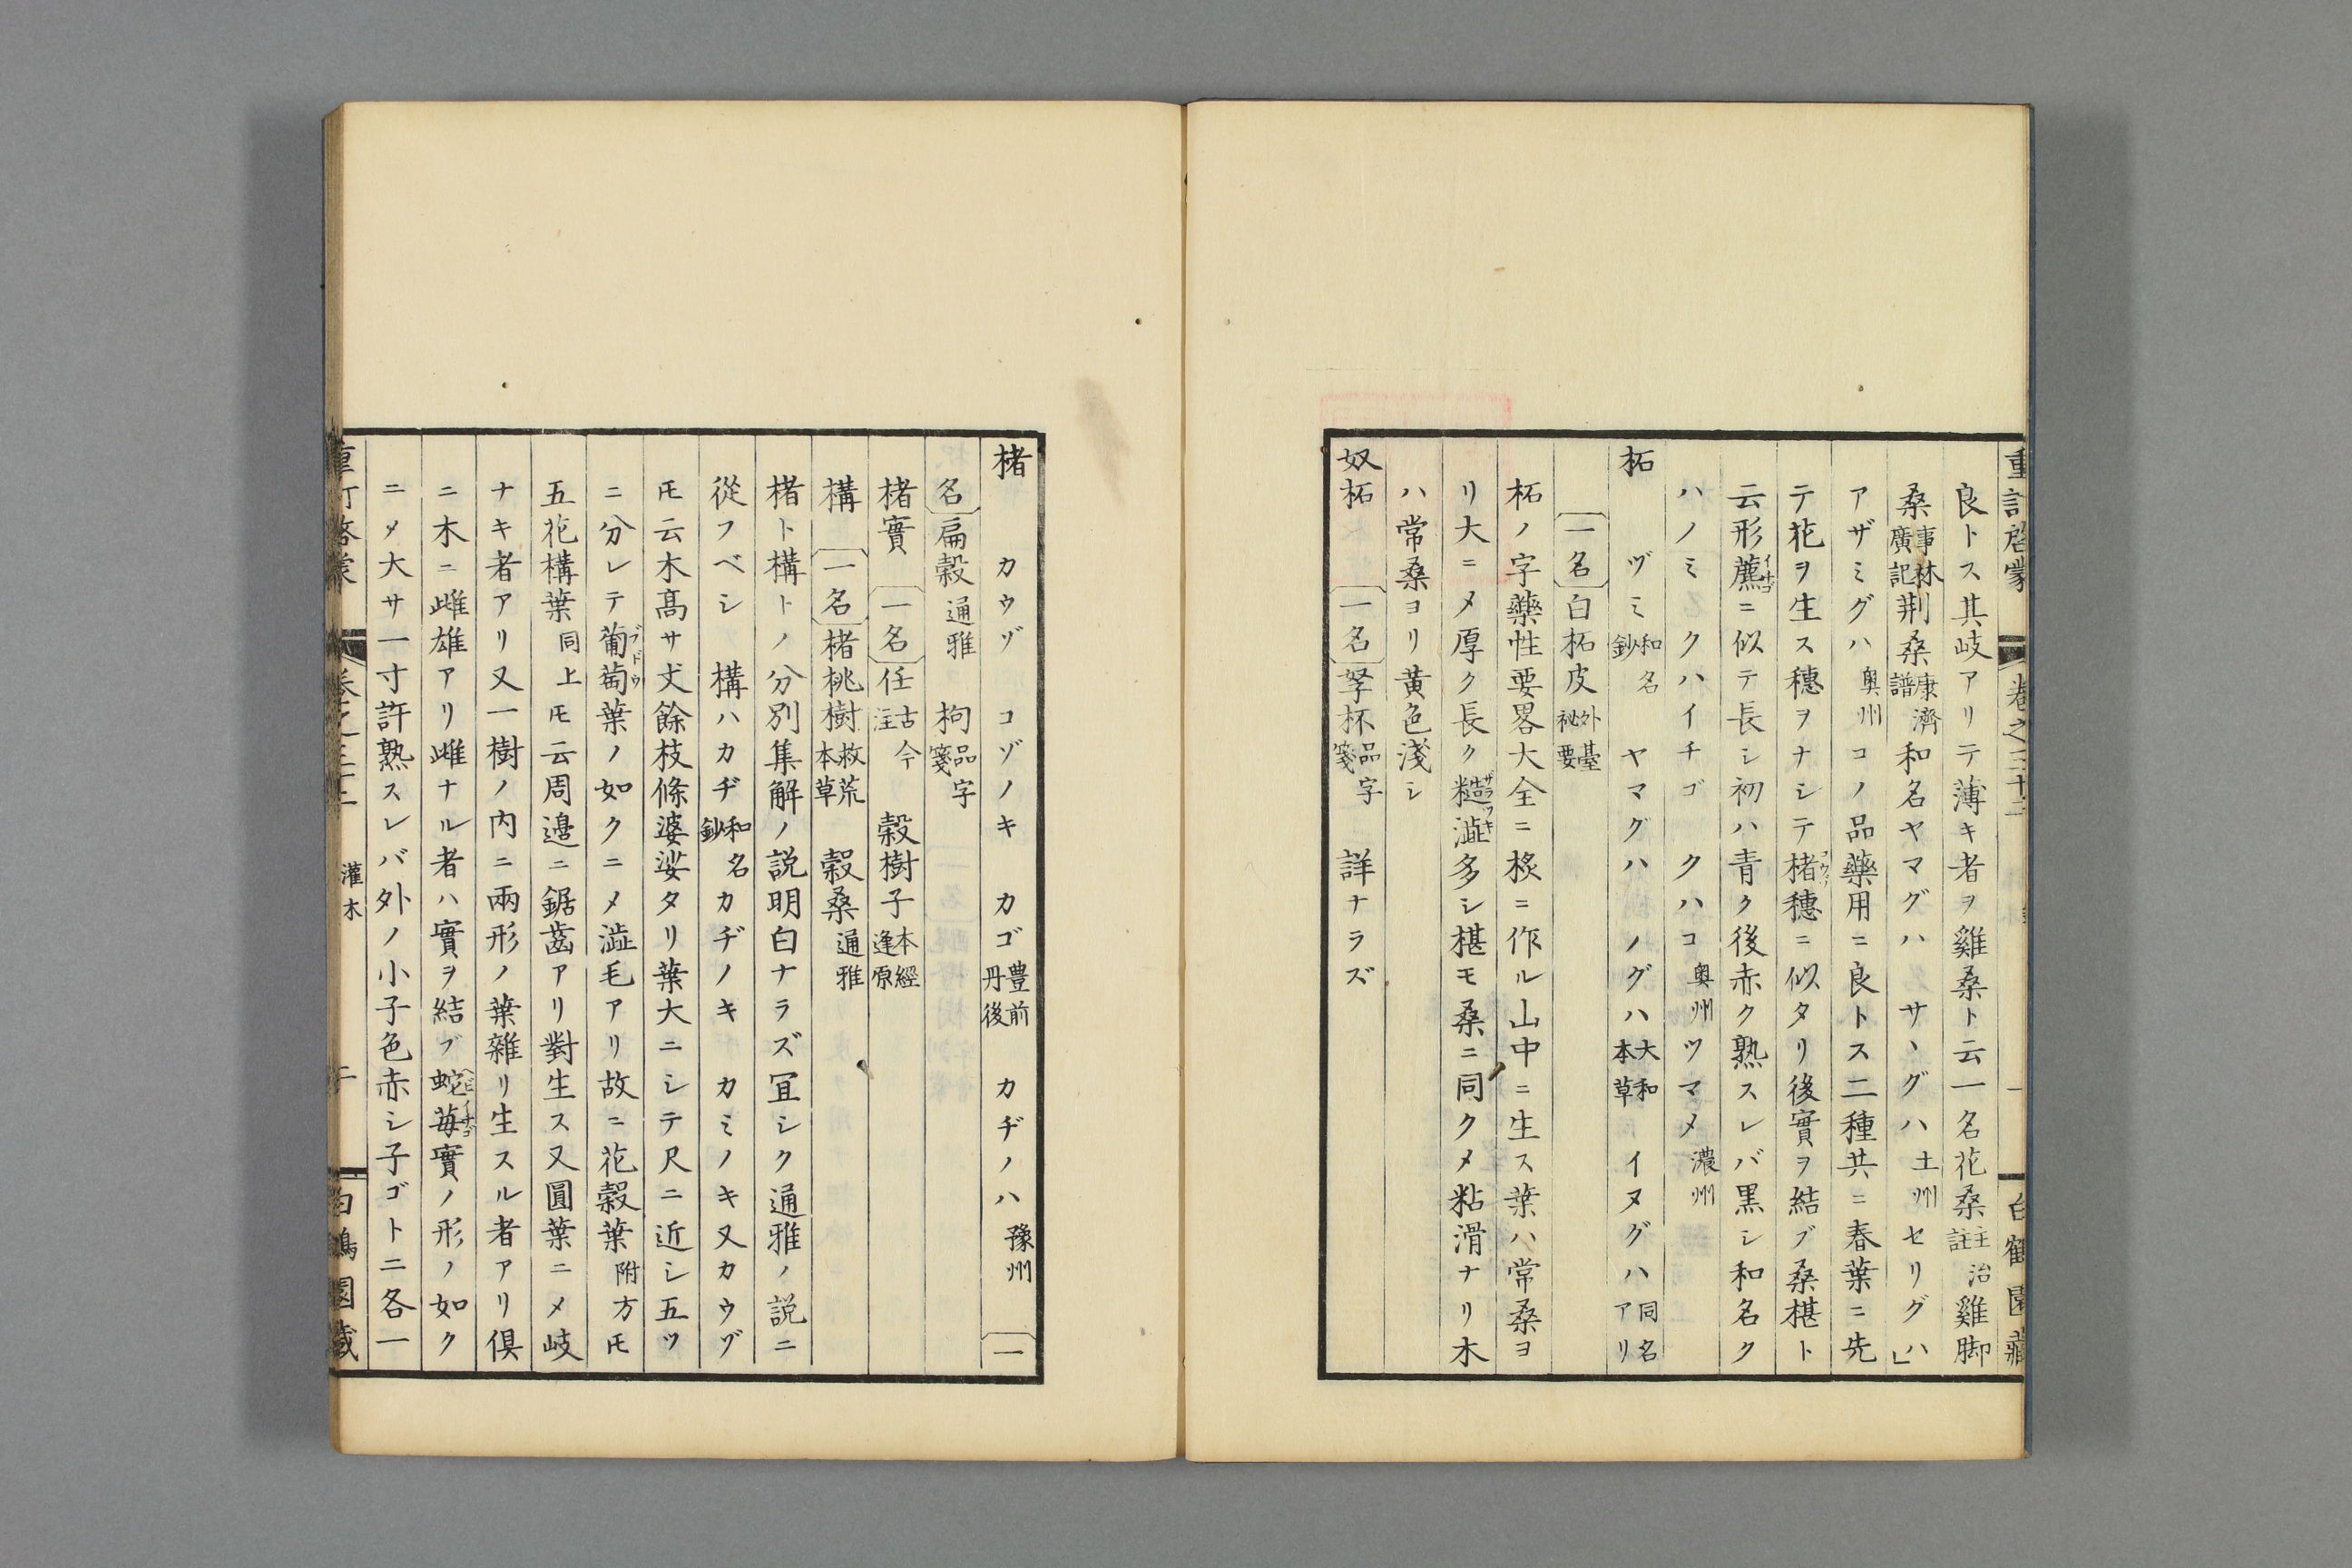 重訂啓蒙 卷之三十二 一 白鶴園藏
良トス其岐アリテ薄キ者ヲ雞桑ト云一名花桑王治註雞脚
桑事林廣記荆桑康濟譜和名ヤマグハ サヽグハ土州セリグハ
アザミグハ奥州コノ品藥用ニ良トス二種共ニ春葉ニ先
テ花ヲ生ス穗ヲナシテ楮穗ニ似タリ後實ヲ結ブ桑椹ト
云形藨イチゴニ似テ長シ初ハ青ク後赤ク熟スレバ黒シ和名ク
ハノミ クハイチゴ クハコ奥州ツマメ濃州
柘 ヅミ和名鈔 ヤマグハ ノグハ大和本草 イヌグハ同名アリ
一名白柘皮外臺祕要
柘ノ字藥性要畧大全ニ棪ニ作ル山中ニ生ス葉ハ常桑ヨ
リ大ニメ厚ク長ク糙澁ザラツキ多シ椹モ桑ニ同クメ粘滑ナリ木
ハ常桑ヨリ黄色淺シ
奴柘 一名孥柸品字箋 詳ナラズ
楮 カウヅ コゾノキ カゴ豊前丹後 カヂノハ豫州 一
名扁穀通雅 枸品字箋
楮實 一名任古今注 穀樹子本經逢原
構 一名楮桃樹救荒本草 穀桑通雅
楮ト構トノ分別集解ノ説明白ナラズ冝シク通雅ノ説ニ
從フベシ 構ハカヂ和名鈔カヂノキ カミノキ又カウヅ
モ云木高サ丈餘枝條婆娑タリ葉大ニシテ尺ニ近シ五ツ
ニ分レテ葡萄ブドウ葉ノ如クニメ澁毛アリ故ニ花穀葉附方モ
五花構葉同上モ云周邊ニ鋸齒アリ對生ス又圓葉ニメ岐
ナキ者アリ又一樹ノ内ニ兩形ノ葉雜リ生スル者アリ倶
ニ木ニ雌雄アリ雌ナル者ハ實ヲ結ブ蛇苺ヘビイチゴ實ノ形ノ如ク
ニメ大サ一寸許熟スレバ外ノ小子色赤シ子ゴトニ各一
重訂啓蒙 卷之三十二 灌木 十 白鶴園藏